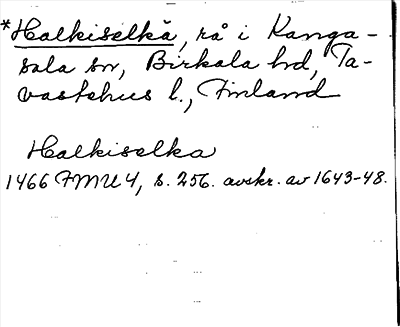 *Halkiselkä, rå i Kanga-
sala sn, Birkala hd, Ta-
vastehus l., Finland
Halkiselka
1466 FMU 4, s. 256. avskr. av 1643-48.